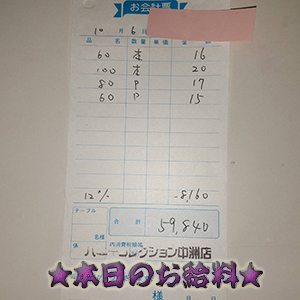 お会計票
10月6日
品名 数量 単価 金額
60 本 16
100 本 20
80 P 17
60 P 15
12% -8,160
テーブル
名様
合計 59,840
係
内消費税額等
ハニーコレクション中洲店
★本日のお給料★
様